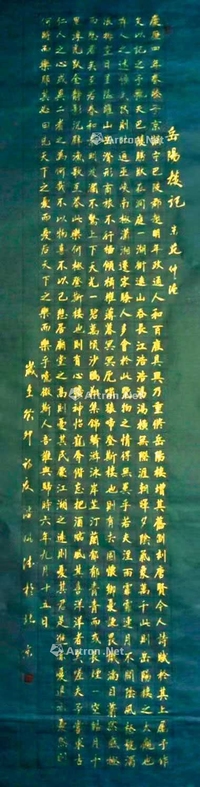 岳陽樓記 宋 范仲淹
慶歷四年春滕子京謫守巴陵郡越明年政通人和百廢具興乃重修岳陽樓增其舊制刻唐賢今人詩賦於其上屬予作
文以記之予觀夫巴陵勝狀在洞庭一湖銜遠山吞長江浩浩湯湯橫無際涯朝暉夕陰氣象萬千此則岳陽樓之大觀也
前人之述備矣然則北通巫峽南極瀟湘遷客騷人多會於此覽物之情得無異乎若夫霪雨霏霏連月不開陰風怒號濁
浪排空日星隱曜山岳潛形商旅不行檣傾楫摧薄暮冥冥虎嘯猿啼登斯樓也則有去國懷鄉憂讒畏譏滿目蕭然感極
而悲者矣至若春和景明波瀾不驚上下天光一碧萬頃沙鷗翔集錦鱗游泳岸芷汀蘭郁郁青青而或長煙一空皓月千
里浮光躍金靜影沉璧漁歌互答此樂何極登斯樓也則有心曠神怡寵辱偕忘把酒臨風其喜洋洋者矣嗟夫予嘗求古
仁人之心或異二者之為何哉不以物喜不以己悲居廟堂之高則憂其民處江湖之遠則憂其君是進亦憂退亦憂然則
何時而樂耶其必曰先天下之憂而憂後天下之樂而樂乎噫微斯人吾誰與歸時六年九月十五日
歲在癸卯初夏 於北京